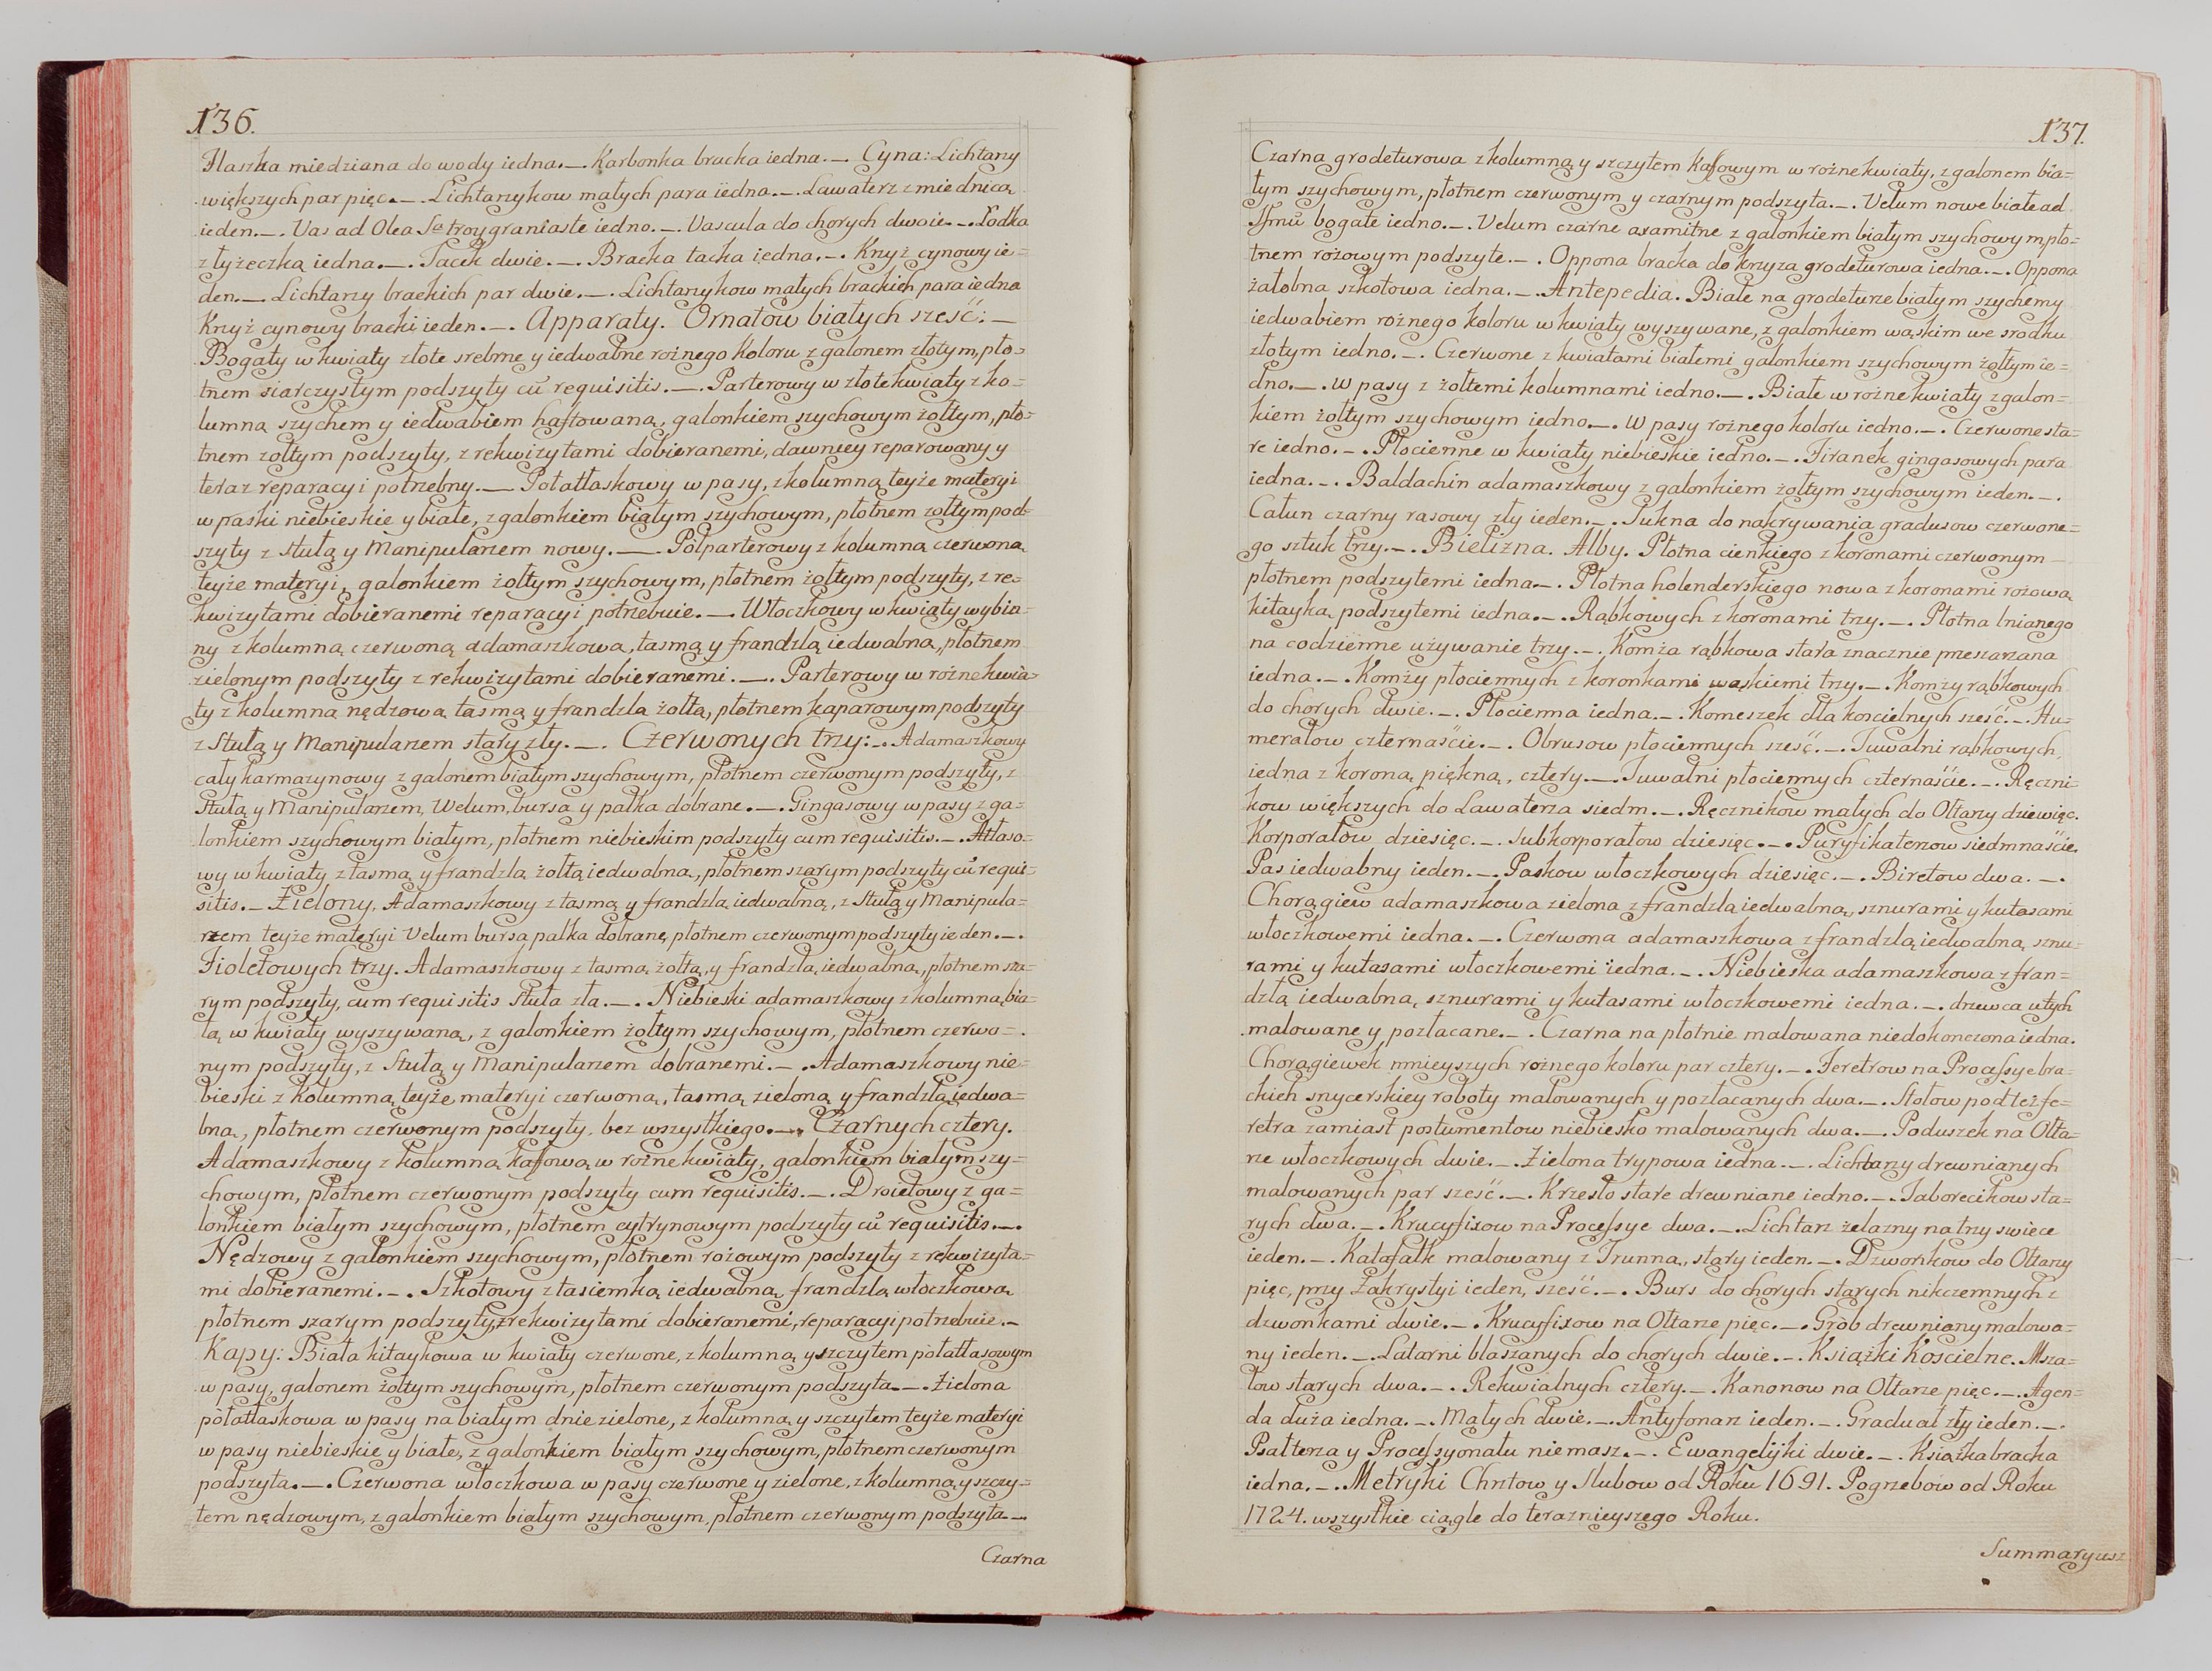 136.
Flaszka miedziana do wody iedna._ Karbonka bracka iedna._. Cyna: Lichtarzy
większych par pięc._. Lichtarzykow małych para iedna._. Lawaterz z miednicą
ieden._. Vas ad Olea Sta troygraniaste iedno._. Vascula do chorych dwoie._. Łodka
z łyżeczką iedna._. Tacek dwie._. Bracka tacka iedna._. Krzyż cynowy ie=
den._. Lichtarzy brackich par dwie._. Lichtarzykow małych brackich para iedna
Krzyż cynowy bracki ieden._. Apparaty. Ornatow białych sześć:_
Bogaty w kwiaty złote srebrne y iedwabne rożnego koloru z galonem złotym, pło=
tnem siarczystym podszyty cū requisitis._. Parterowy w złote kwiaty z ko=
lumną szychem y iedwabiem haftowaną, galonkiem szychowym żołtym, pło=
tnem żołtym podszyty, z rekwizytami dobieranemi, dawniey reparowany y
teraz reparacyi potrzebny._. Połatłaskowy w pasy, z kolumną teyże materyi
w paski niebieskie y białe, z galonkiem białym szychowym, płotnem żołtym pod=
szyty z stułą y Manipularzem nowy._. Połparterowy z kolumną czerwoną
teyże materyi, galonkiem żołtym szychowym, płotnem żołtym podszyty, z re=
kwizytami dobieranemi reparacyi potrzebuie._. Włoczkowy w kwiaty wybia=
ny z kolumną czerwoną adamaszkową, tasmą y frandzlą iedwabną, płotnem
zielonym podszyty z rekwizytami dobieranemi._. Parterowy w rożne kwia=
ty z kolumną nędzową tasmą y frandzla żołtą, płotnem kaparowym podszyty
z Stułą y Manipularzem stary zły._. Czerwonych trzy:_. Adamaszkowy
cały karmazynowy z galonem białym szychowym, płotnem czerwonym podszyty, z
Stułą y Manipularzem, Welum, bursa y palka dobrane._. Gingasowy w pasy z ga=
lonkiem szychowym białym, płotnem niebieskim podszyty cum requisitis._. Atłaso=
wy w kwiaty z tasmą y frandzlą żołtą iedwabną, płotnem szarym podszyty cū requi=
sitis._ Zielony. Adamaszkowy z tasmą y frandzlą iedwabną, z Stułą y Manipula=
rzem teyże materyi Velum bursa palka dobrane, płotnem czerwonym podszyty ieden._.
Fioletowych trzy. Adamaszkowy z tasmą żołtą, y frandzlą iedwabną, płotnem sza=
rym podszyty, cum requisitis Stuła zła._. Niebieski adamaszkowy z kolumną bia=
łą w kwiaty wyszywaną, z galonkiem żołtym szychowym, płotnem czerwo=
nym podszyty, z Stułą y Manipularzem dobranemi._. Adamaszkowy nie=
bieski z kolumną teyże materyi czerwoną, tasmą zieloną y frandzlą iedwa=
bną, płotnem czerwonym podszyty, bez wszystkiego._. Czarnych cztery.
Adamaszkowy z kolumną kafową w rożne kwiaty, galonkiem białym szy=
chowym, płotnem czerwonym podszyty cum requisitis._. Droietowy z ga=
lonkiem białym szychowym, płotnem cytrynowym podszyty cū requisitis._.
Nędzowy z galonkiem szychowym, płotnem rożowym podszyty z rekwizyta=
mi dobieranemi._. Szkotowy z tasiemką iedwabną, frandzlą włoczkową
płotnem szarym podszyty, z rekwizytami dobieranemi, reparacyi potrzebuie._
Kapy: Biała kitaykowa w kwiaty czerwone, z kolumną y szczytem połatłasowym
w pasy, galonem żołtym szychowym, płotnem czerwonym podszyta._. Zielona
połatłaskowa w pasy na białym dnie zielone, z kolumną y szczytem teyże materyi
w pasy niebieskie y białe, z galonkiem białym szychowym, płotnem czerwonym
podszyta._. Czerwona włoczkowa w pasy czerwone y zielone, z kolumną y szczy=
tem nędzowym, z galonkiem białym szychowym, płotnem czerwonym podszyta_
Czarna
137.
Czarna grodeturowa z kolumną y szczytem kafowym w rożne kwiaty, z galonem bia=
łym szychowym, płotnem czerwonym y czarnym podszyta._. Velum nowe białe ad
Ssmū bogate iedno._. Velum czarne axamitne z galonkiem białym szychowym, pło=
tnem rożowym podszyte._. Oppona bracka do krzyza grodeturowa iedna._. Oppona
żałobna szkotowa iedna._. Antepedia. Białe na grodeturze białym szychemy
iedwabiem rożnego koloru w kwiaty wyszywane, z galonkiem wąskim we srodku
złotym iedno._. Czerwone z kwiatami białemi galonkiem szychowym żołtym ie=
dno._. W pasy z żołtemi kolumnami iedno._. Białe w rożne kwiaty z galon=
kiem żołtym szychowym iedno._. W pasy rożnego koloru iedno._. Czerwone sta=
re iedno._. Płocienne w kwiaty niebieskie iedno._. Firanek gingasowych para
iedna._. Baldachin adamaszkowy z galonkiem żołtym szychowym ieden._.
Całun czarny rasowy zły ieden._. Sukna do nakrywania gradusow czerwone=
go sztuk trzy._. Bielizna. Alby. Płotna cienkiego z koronami czerwonym
płotnem podszytemi iedna_. Płotna holenderskiego nowa z koronami rożową
kitayką podszytemi iedna._. Rąbkowych z koronami trzy._. Płotna lnianego
na codzienne używanie trzy._. Komża rąbkowa stara znacznie przeszarzana
iedna._. Komży płociennych z koronkami wąskiemi trzy._. Komży rąbkowych
do chorych dwie._. Płocienna iedna._. Komeszek dla koscielnych sześć._. Hu=
merałow czternaście._. Obrusow płociennych sześć._. Tuwalni rąbkowych,
iedna z koroną piękną, cztery._. Tuwalni płociennych czternaście._. Ręczni=
kow większych do Lawaterza siedm._. Ręcznikow małych do Ołtarzy dziewięc.
Korporałow dziesięc._. Subkorporałow dziesięc._. Puryfikaterzow siedmnaście.
Pas iedwabny ieden._. Paskow włoczkowych dziesięc._. Biretow dwa._.
Chorągiew adamaszkowa zielona z frandzlą iedwabną, sznurami y kutasami
włoczkowemi iedna._. Czerwona adamaszkowa z frandzlą iedwabną sznu=
rami y kutasami włoczkowemi iedna._. Niebieska adamaszkowa z fran=
dzlą iedwabną, sznurami y kutasami włoczkowemi iedna._. drzewca u tych
malowane y pozłacane._. Czarna na płotnie malowana niedokończona iedna.
Chorągiewek mnieyszych rożnego koloru par cztery._. Feretrow na Processye bra=
ckich snycerskiey roboty malowanych y pozłacanych dwa._. Stołow pod też fe=
retra zamiast postumentow niebiesko malowanych dwa._. Poduszek na Ołta=
rze włoczkowych dwie._. Zielona trypowa iedna._. Lichtarzy drewnianych
malowanych par sześć._. Krzesło stare drewniane iedno._. Taborecikow sta=
rych dwa._. Krucyfixow na Processye dwa._. Lichtarz żelazny na trzy swięce
ieden._. Katafalk malowany z Trunną, stary ieden._. Dzwonkow do Ołtarzy
pięc, przy Zakrystyi ieden, sześć._. Burs do chorych starych nikczemnych z
dzwonkami dwie._. Krucyfixow na Ołtarze pięc._. Grob drewniany malowa=
ny ieden._. Latarni blaszanych do chorych dwie._. Książki Koscielne. Msza=
łow starych dwa._. Rekwialnych cztery._. Kanonow na Ołtarze pięc._. Agen=
da duża iedna._. Małych dwie._. Antyfonarz ieden._. Graduał zły ieden._.
Psałterza y Processyonału niemasz._. Ewangelijki dwie._. Książka bracka
iedna._. Metryki Chrztow y Slubow od Roku 1691. Pogrzebow od Roku
1724. wszystkie ciągle do teraznieyszego Roku.
Summaryusz